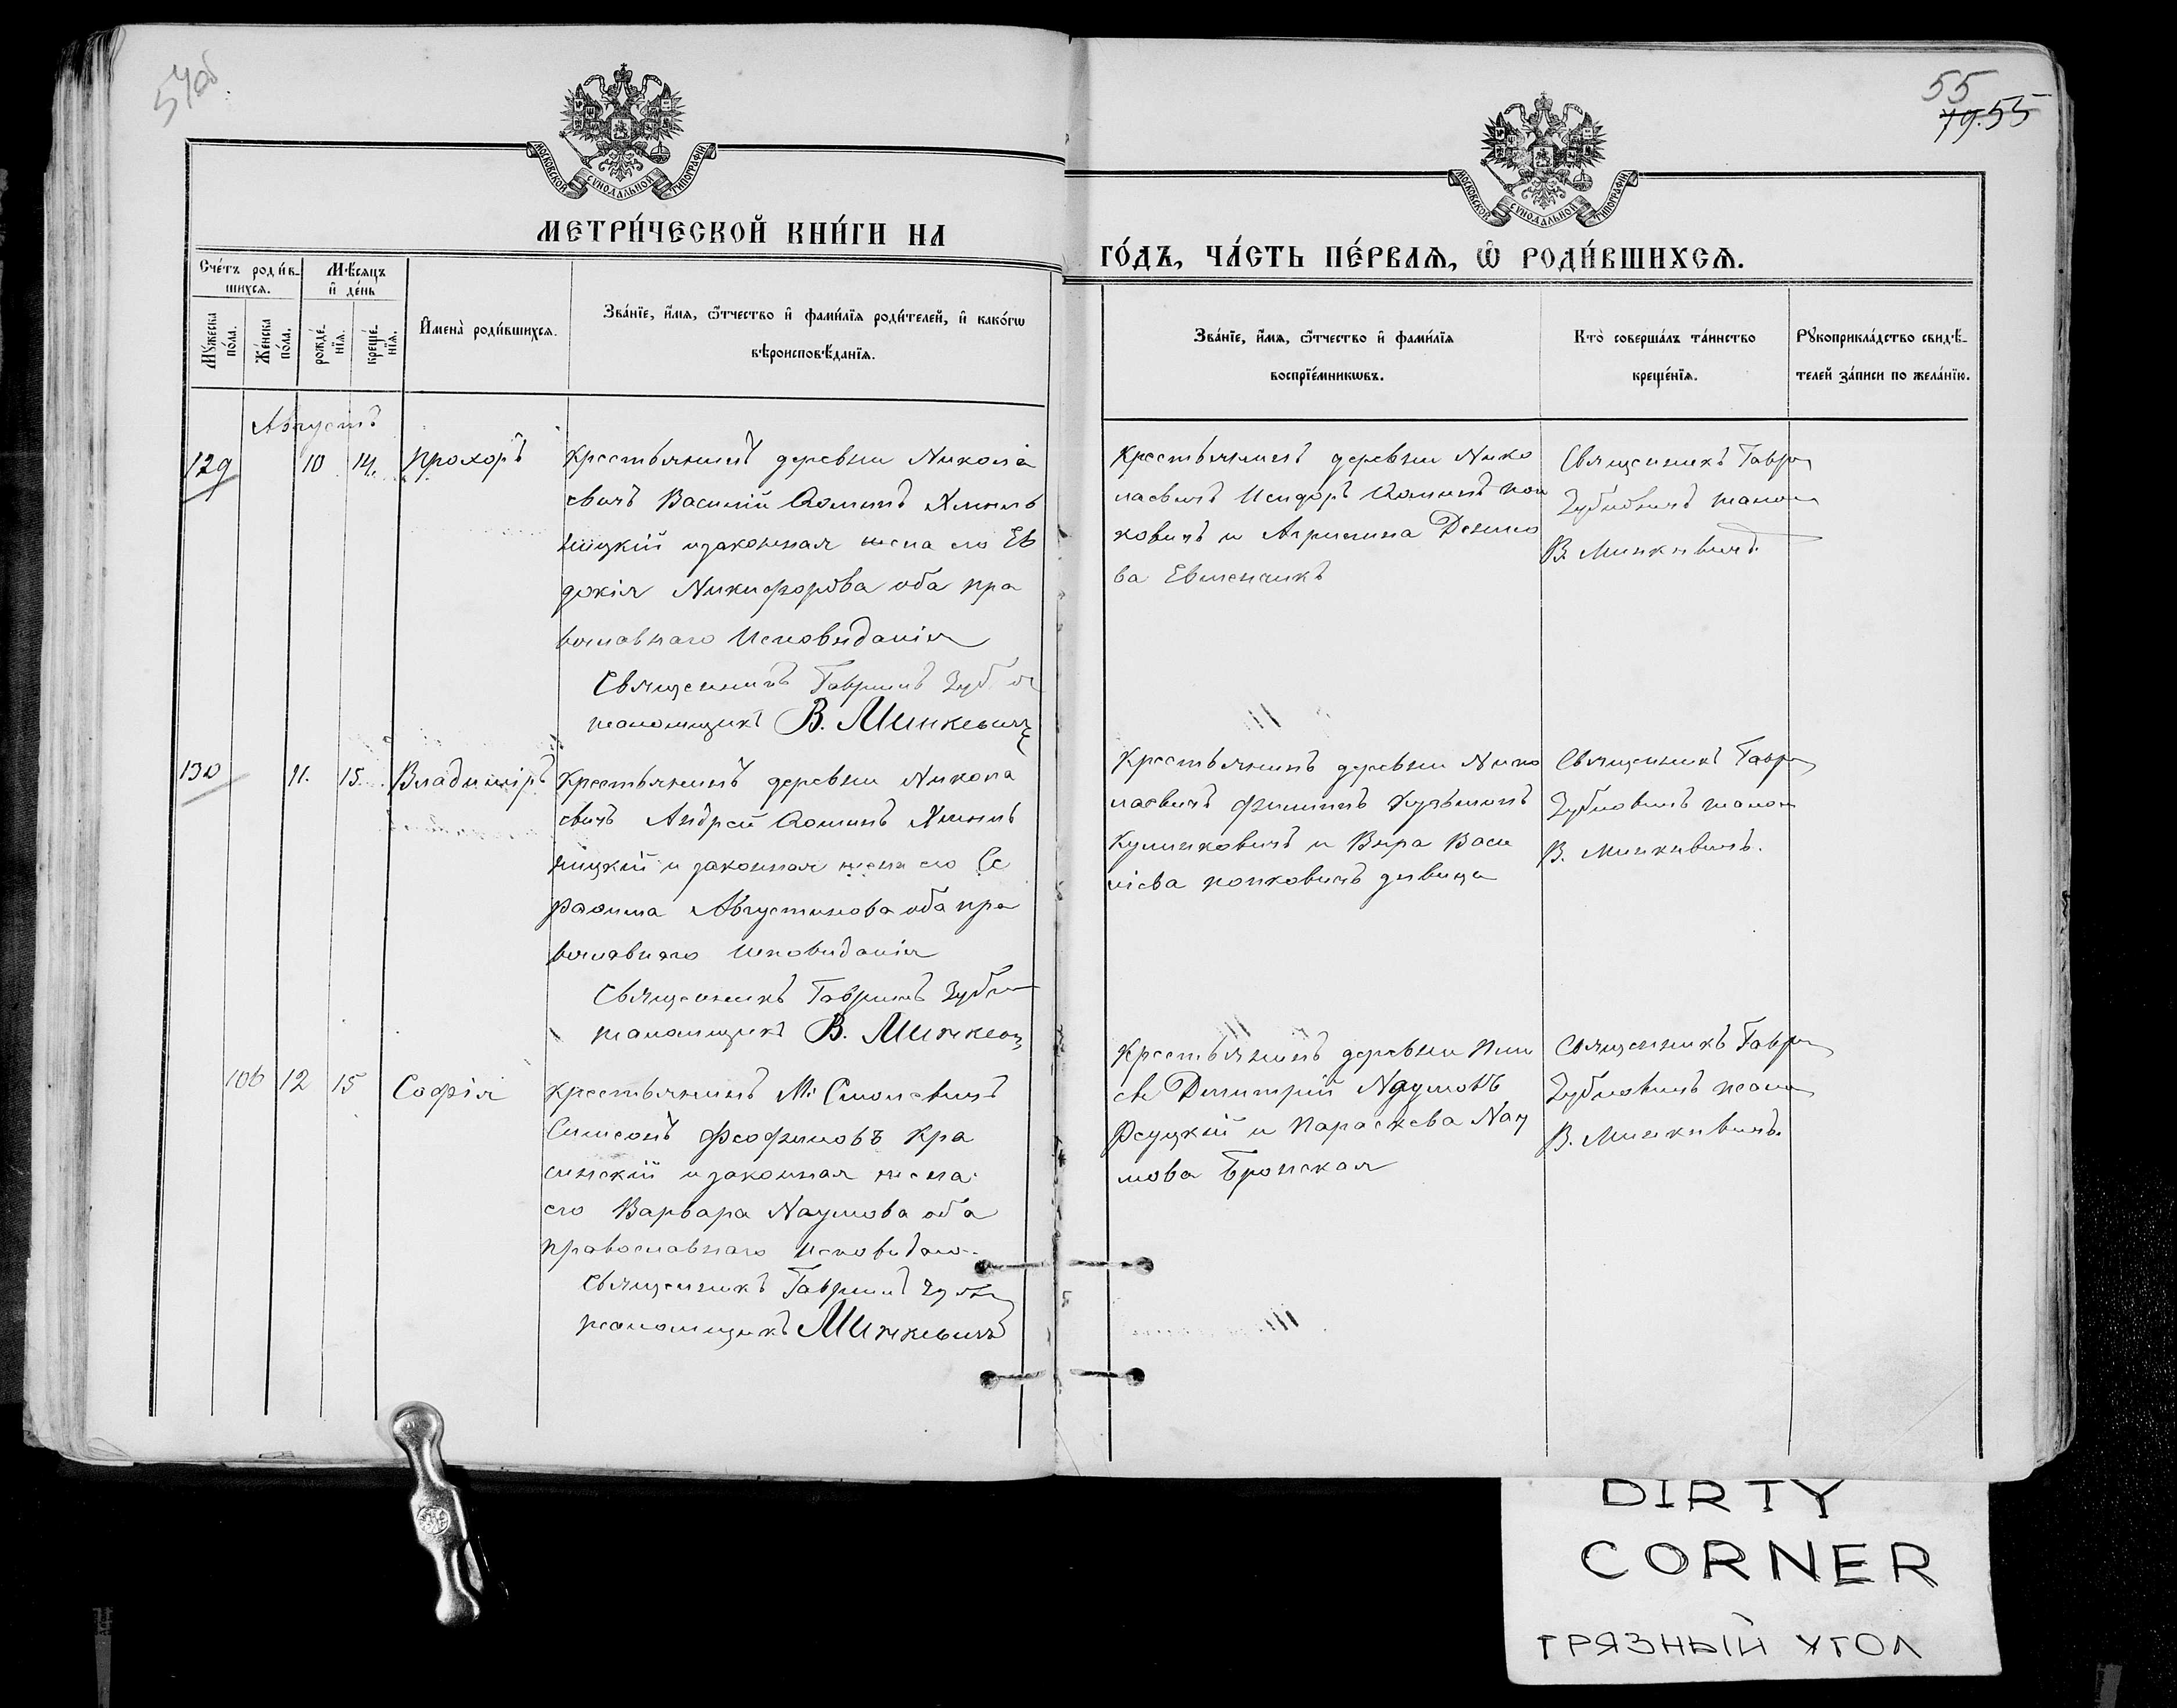 54об
55
79. 55
МОСКОВСКОЙ СѴНОДАЛЬНОЙ ТИПОГРАФІИ
МОСКОВСКОЙ СѴНОДАЛЬНОЙ ТИПОГРАФІИ
МЕТРИ́ЧЕСКОЙ КНИ́ГИ НА
ГО́ДЪ, ЧА́СТЬ ПЕ́РВАѦ, Ѽ РОДИ́ВШИХСѦ.
Сче́тъ роди́в-
шихсѧ.
Мѣ́сѧцъ
и҆ де́нь
Мꙋ́жеска
по́ла.
Же́нска
по́ла.
рожде́-
нїѧ.
креще́-
нїѧ.
И҆мена̀ роди́вшихсѧ.
Зва́нїе, и҆́мѧ, ѻ҆́тчество и҆ фами́лїѧ роди́телей, и҆ како́гѡ
вѣроисповѣ́данїѧ.
Зва́нїе, и҆́мѧ, ѻ҆́тчество и҆ фами́лїѧ
воспрїе́мникѡвъ.
Кто̀ соверша́лъ та́инство
креще́нїѧ.
Рꙋкоприкла́дство свидѣ́-
телей за́писи по жела́нїю.
Августъ
129 10 14. Прохоръ
Крестьянинъ деревни Никола
евичъ Василій Фоминъ Хмѣль
ницкій и законная жена его Ев
докія Никифорова оба пра
вославнаго Исповѣданія
Священникъ Гавріилъ
псаломщикъ В. Минкевичъ
Крестьянинъ деревни Нико
лаевичъ Исидоръ Фоминъ Поп
ковичъ и Агрипина Дени­со
ва
Священникъ Гавр
Зубковичъ псалом
В. Минкевичъ.
130 11. 15. Владиміръ
Крестьянинъ деревни Никола
евичъ Андрей Фоминъ Хмѣль
ницкій и законная жена его Се
рафима Августинова оба пра
вославнаго Исповѣданія
Священникъ Гавріилъ
псаломщикъ В. Минкевич
Крестьянинъ деревни Нико
лаевичъ Филиппъ Кузьминъ
и Вѣра Васи
ліева Попковичъ дѣвица
Священникъ Гавр
Зубковичъ псалом
В. Минкевичъ.
106 12 15 Софія
Крестьянинъ М.
Симеонъ Феофиловъ Кра
синскій и законная жена
его Варвара Наумова оба
православнаго Исповѣдан.
Священникъ Гавріилъ
псаломщикъ Минкевичъ
Крестьянинъ деревни
Димитрій Наумовъ
и Параскева Нау
мова Бронская
Священникъ Гавр
Зубковичъ псалом
В. Минкевичъ.
DIRTY
CORNER
ГРЯЗНЫЙ УГОЛ